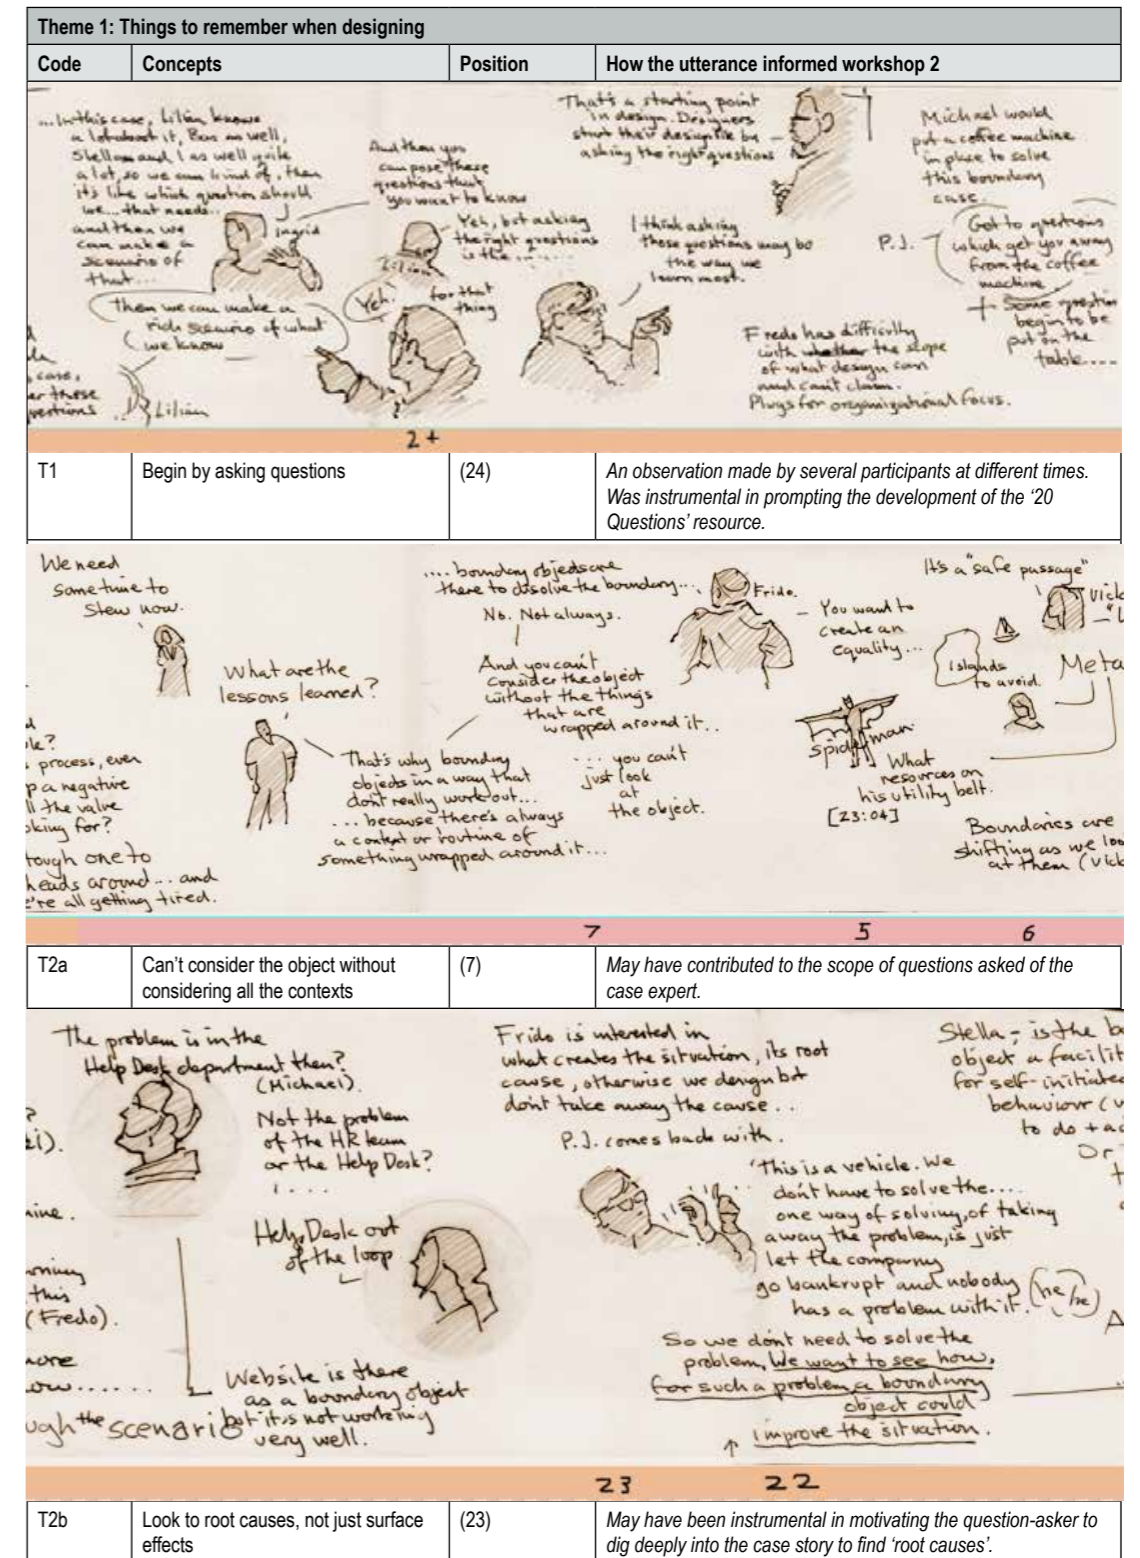 Theme 1: Things to remember when designing
Code Concepts Position How the utterance informed workshop 2
...In this case, Lilian knows
a lot about it, Bas as well,
Stella and I as well quite
a lot, so we can kind of, then
it's like which question should
we... that needs...
and then we
can make a
scenario of
that...
Ingrid
And then you
can pose these
questions that
you want to know
Yeh, but asking
the right questions
is the .....
Lilian
Then we can make a
rich scenario of what
we know
Lilian
case,
these
questions
Yeh!
for that
thing
That's a starting point
in design. Designers
start their design life by
asking the right questions
I think asking
those questions may be
the way we
learn most.
Michael would
put a coffee machine
in place to solve
this boundary
case.
P.J.
Got to questions
which get you away
from the coffee
machine
+ Some question
begin to be
put on the
table....
Fredo has difficulty
with whether the slope
of what design can
and can't claim.
Plugs for organizational focus.
2+
T1 Begin by asking questions (24) An observation made by several participants at different times.
Was instrumental in prompting the development of the '20
Questions' resource.
We need
some time to
stew now.
What are the
lessons learned?
process, even
a negative
the value
king for?
tough one to
heads around... and
're all getting tired.
.... boundary objects are
there to dissolve the boundary...
No. Not always.
And you can't
consider the object
without the things
that are
wrapped around it..
That's why boundary
objects in a way that
don't really work out...
... because there's always
a context or routine of
something wrapped around it...
... you can't
just look
at
the object.
Frido.
You want to
create an
equality...
It's a "safe passage"
Islands
to avoid.
Meta
spiderman
What
resources on
his utility belt.
[23:04]
Boundaries are
shifting as we
at them
7 5 6
T2a Can't consider the object without
considering all the contexts
(7) May have contributed to the scope of questions asked of the
case expert.
The problem is in the
Help Desk department then?
(Michael).
Not the problem
of the HR team
or the Help Desk?
....
Help Desk out
of the loop
this
(Fredo).
Website is there
as a boundary object
but it is not working
very well.
the scenario
Frido is interested in
what creates the situation, its root
cause, otherwise we design but
don't take away the cause..
P.J. comes back with.
'This is a vehicle. We
don't have to solve the....
one way of solving, of taking
away the problem, is just
let the company
go bankrupt and nobody
has a problem with it. (he/he)
So we don't need to solve the
problem, We want to see how,
for such a problem a boundary
object could
improve the situation.
Stella; is the
object a
for self-initiated
behaviour
to do +
Or
23 22
T2b Look to root causes, not just surface
effects
(23) May have been instrumental in motivating the question-asker to
dig deeply into the case story to find 'root causes'.